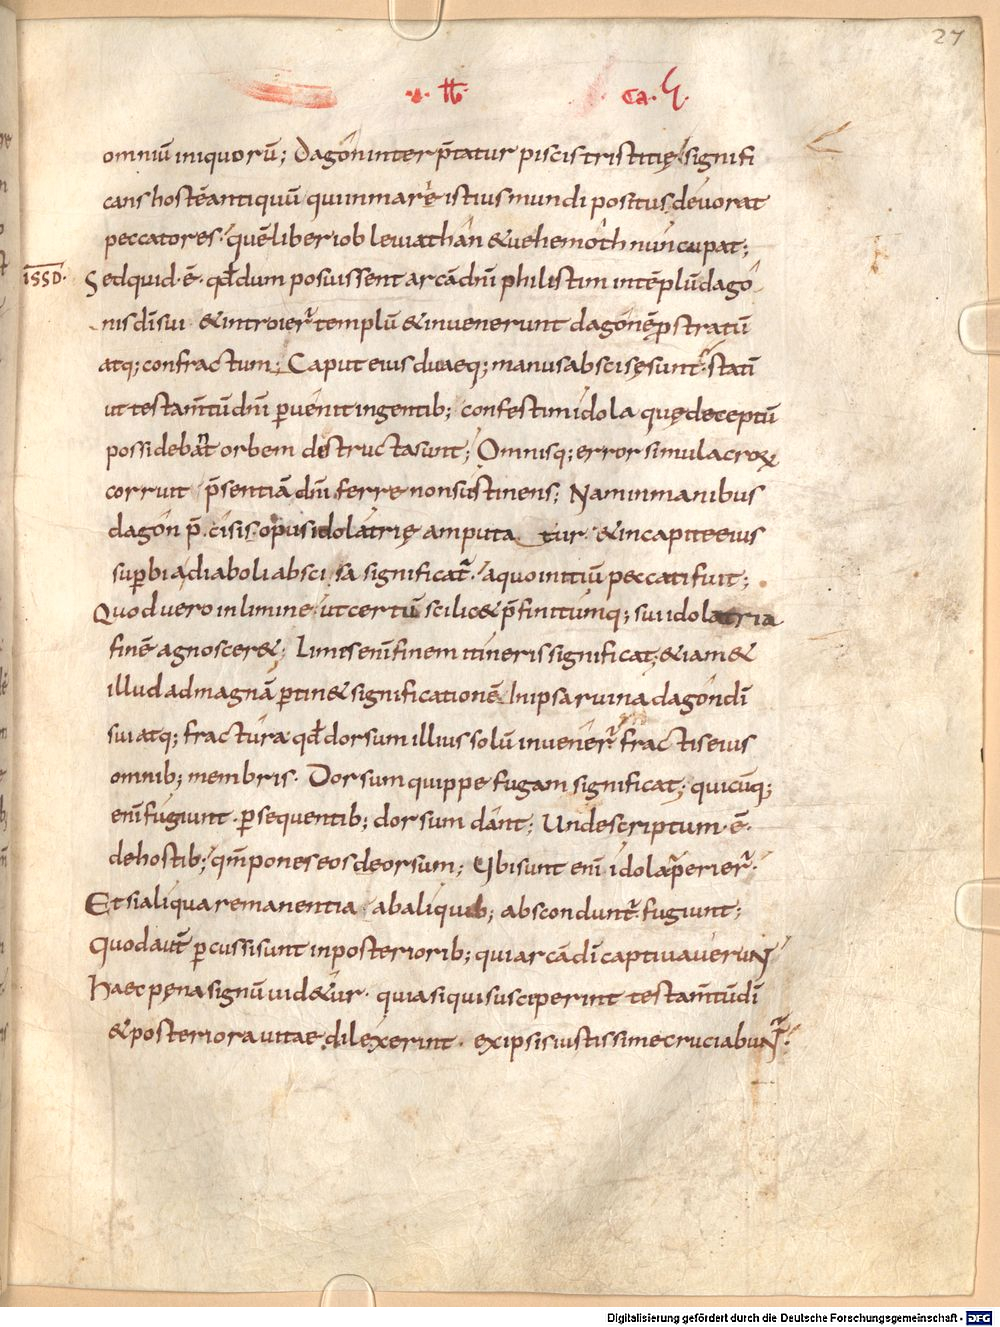 27
omniū iniquorū; Dagón interp̄tatur piscis tristitię, signifi
cans hostē antiquū qui in mare istius mundi positus devorat
peccatores. quē liber iob leviathán & vehemóth nuncupat;
ISSD. Sed quid ē. qđ dum posuissent arcā dnī philistim in tēplū dagó
nis dī sui & introier̄ templū & invenerunt dagónē p̄stratū
atq; confractum; Caput eius duaeq; manus abscisę sunt. statī
ut testam̄tū dnī pervénit in gentib; confestim ídola quę deceptū
possidebant orbem destructa sunt; Omnisq; error simulacroꝝ
corruit p̄sentiā dnī ferre non sustinens; Nam in manibus
dagón p̄cisis opus idolatrię amputatur & in capite eius
superbia diaboli abscisa significat̄. a quo initiū peccati fuit;
Quod vero in limine. ut certū scilic& p̄finitumq; sui idolatria
finē agnoscer&; Limes enī finem itineris significat; & iam &
illud ad magnā pertin& significationē. In ipsa ruina dagón dī
sui atq; fractúra qđ dorsum illius solū invenér̄ fractis eius
omnib; membris. Dorsum quippe fugam significat; quicūq;
enī fúgiunt persequentib; dorsum dánt; Unde scriptum ē.
de hostib; qm̄ pones eos deorsum; Ubi sunt enī idola perier̄.
Et si aliqua remanentia ab aliquib; abscondunt̄ fugiunt;
Quod aut̄ percussi sunt in posteriorib; qui arcā dī captivaverunt
Haec pęna signū vid&ur. quia si qui susciperint testam̄tū dī
& posteriora vitae diléxerint. ex ipsis iustissime cruciabunt̄.
Digitalisierung gefördert durch die Deutsche Forschungsgemeinschaft - DFG